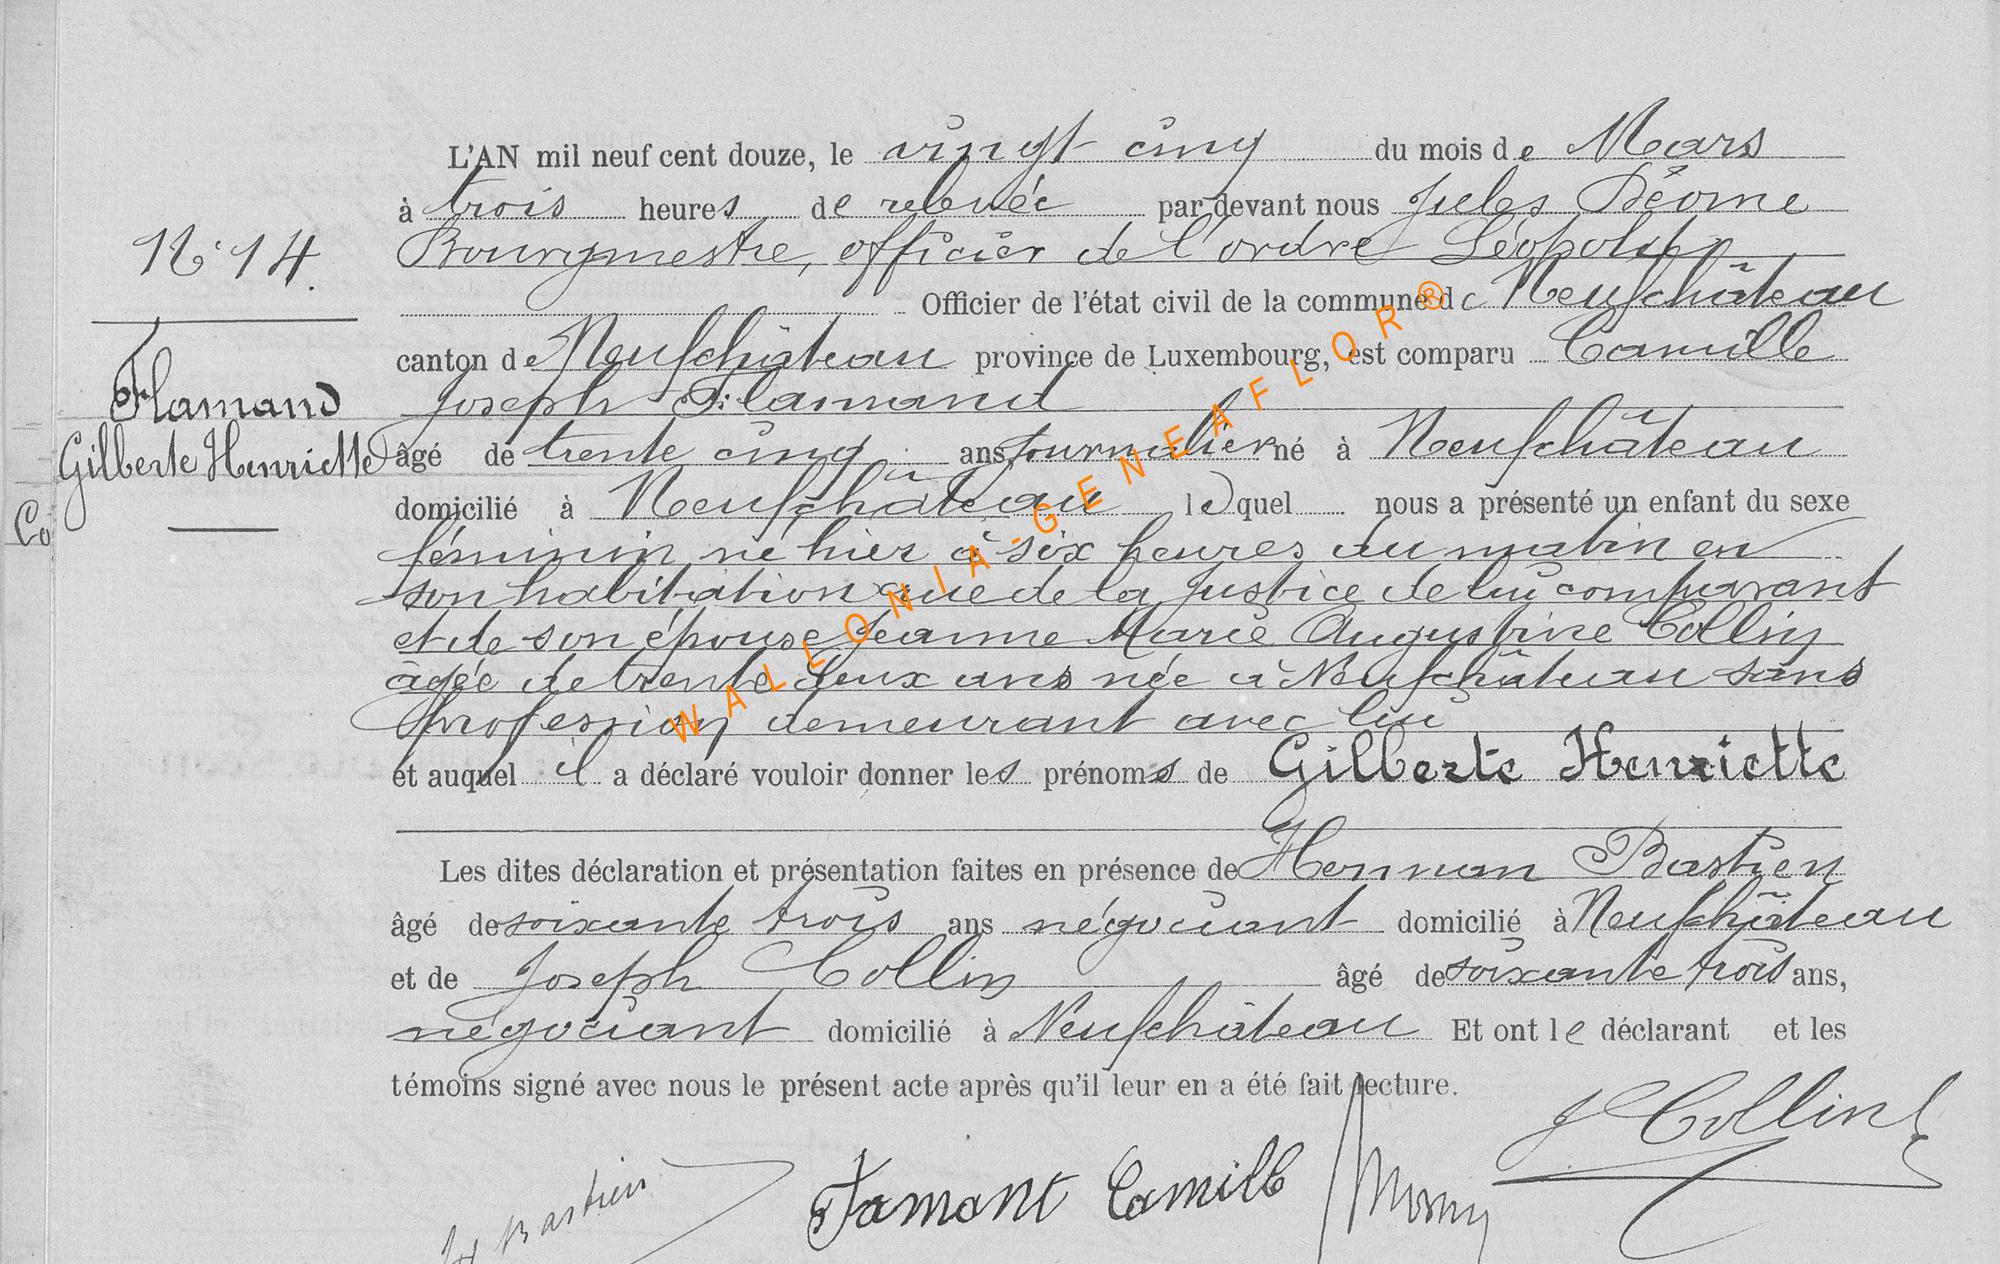 L'AN mil neuf cent douze, le vingt cinq du mois de Mars
à trois heures de relevée par devant nous Jules
Bourgmestre, officier de l'ordre Léopold
N° 14.
Officier de l'état civil de la commune de Neufchâteau
canton de Neufchâteau province de Luxembourg, est comparu Camille
Joseph Flamand
Flamand
Gilberte Henriette
âgé de trente cinq ans journalier né à Neufchâteau
domicilié à Neufchâteau lequel nous a présenté un enfant du sexe
Co
féminin né hier à six heures du matin en
son habitation rue de la Justice de lui comparant
et de son épouse Jeanne Marie Augustine Collin
âgée de trente deux ans née à Neufchâteau sans
profession demeurant avec lui
et auquel il a déclaré vouloir donner les prénoms de Gilberte Henriette
Les dites déclaration et présentation faites en présence de Herman Bastien
âgé de soixante trois ans négociant domicilié à Neufchâteau
et de Joseph Collin âgé de soixante trois ans,
négociant domicilié à Neufchâteau Et ont le déclarant et les
témoins signé avec nous le présent acte après qu'il leur en a été fait lecture.
J Collin
H Bastien
Flamant Camille
WALLONIA-GENEAFLOR®